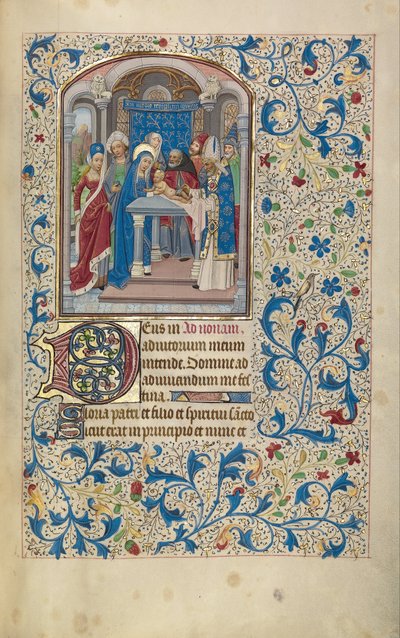 Eus in Ad nonam.
adiutorium meum
intende. Domine ad
adiuuandum me fes
tina.
Gloria patri et filio et spiritui sancto
Sicut erat in principio et nunc et